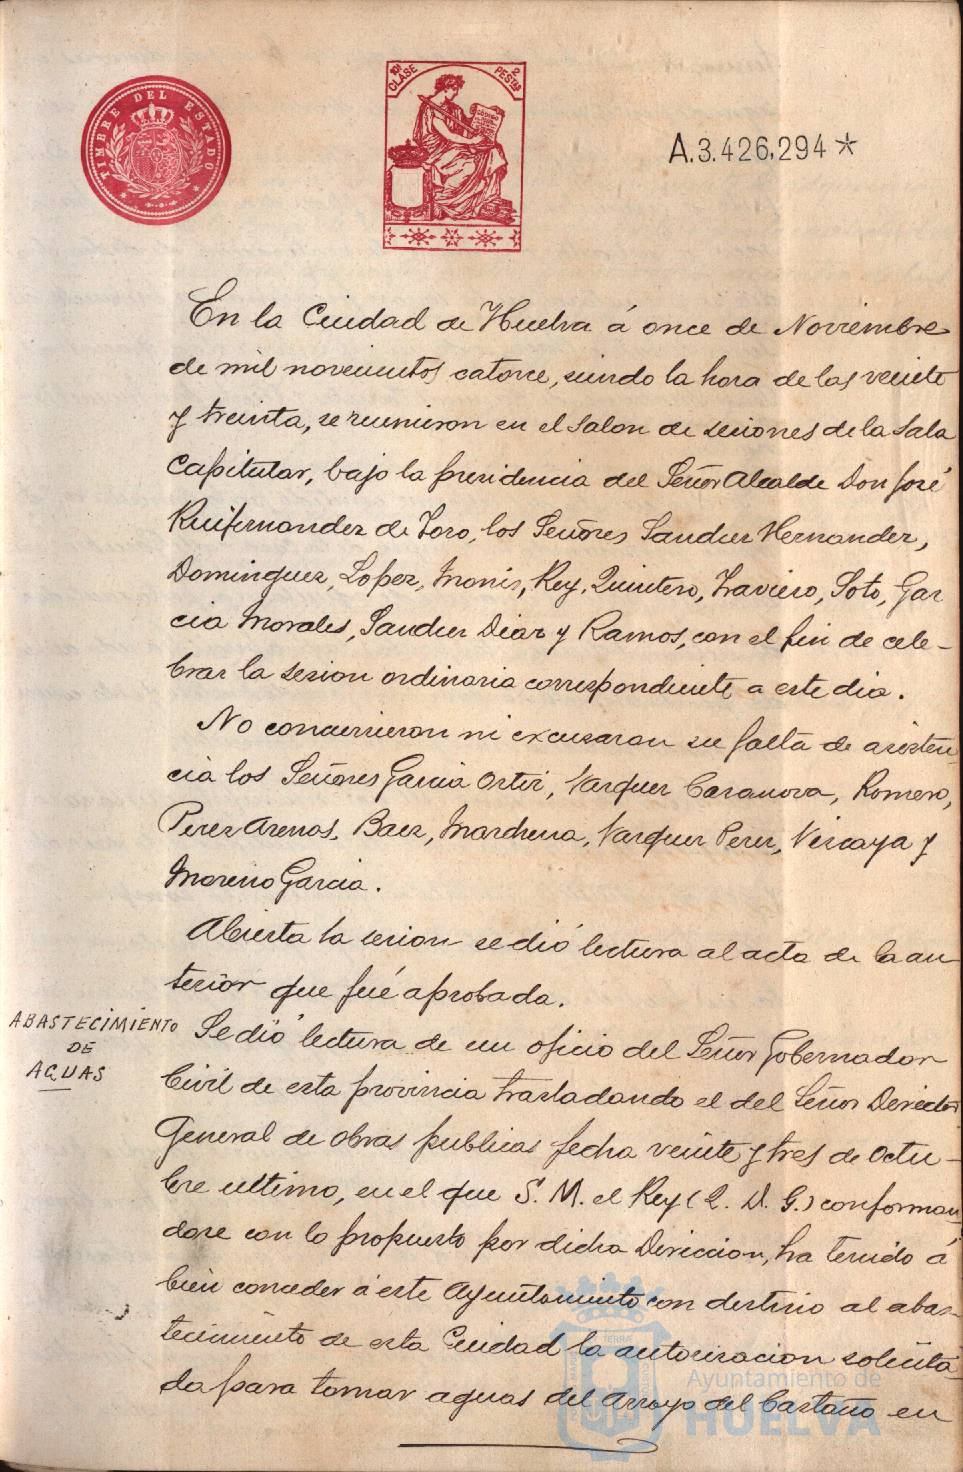 TIMBRE DEL ESTADO
10ª CLASE
2 PESTAS
CÓDIGO
A.3.426.294 *
En la Ciudad de Huelva á once de Noviembre
de mil novecientos catorce, siendo la hora de las veinte
y treinta, se reunieron en el salon de sesiones de la sala
Capitular, bajo la presidencia del Señor Alcalde Don José
Ruifernandez de Toro, los Señores Sanchez Hernandez,
Dominguez, Lopez, Monis, Rey, Quintero, Traviero, Soto, Gar
cia Morales, Sanchez Diaz y Ramos, con el fin de cele-
brar la sesion ordinaria correspondiente a este dia.
No concurrieron ni excusaron su falta de asisten
cia los Señores Garcia Ortiz, Vazquez Casanova, Romero,
Perez Arenas, Baez, Marchena, Vazquez Perez, Vizcaya y
Moreno Garcia.
Abierta la sesion se dió lectura al acta de la an
terior que fué aprobada.
ABASTECIMIENTO
DE
AGUAS
Se dió lectura de un oficio del Señor Gobernador
Civil de esta provincia trasladando el del Señor Director
General de Obras publicas fecha veinte y tres de Octu-
bre ultimo, en el que S. M. el Rey (Q. D. G.) conforman
dose con lo propuesto por dicha Direccion, ha tenido á
bien conceder á este Ayuntamiento con destino al abas-
tecimiento de esta Ciudad la autorizacion solicita-
da para tomar aguas del Arroyo del Castaño en
Ayuntamiento de
HUELVA